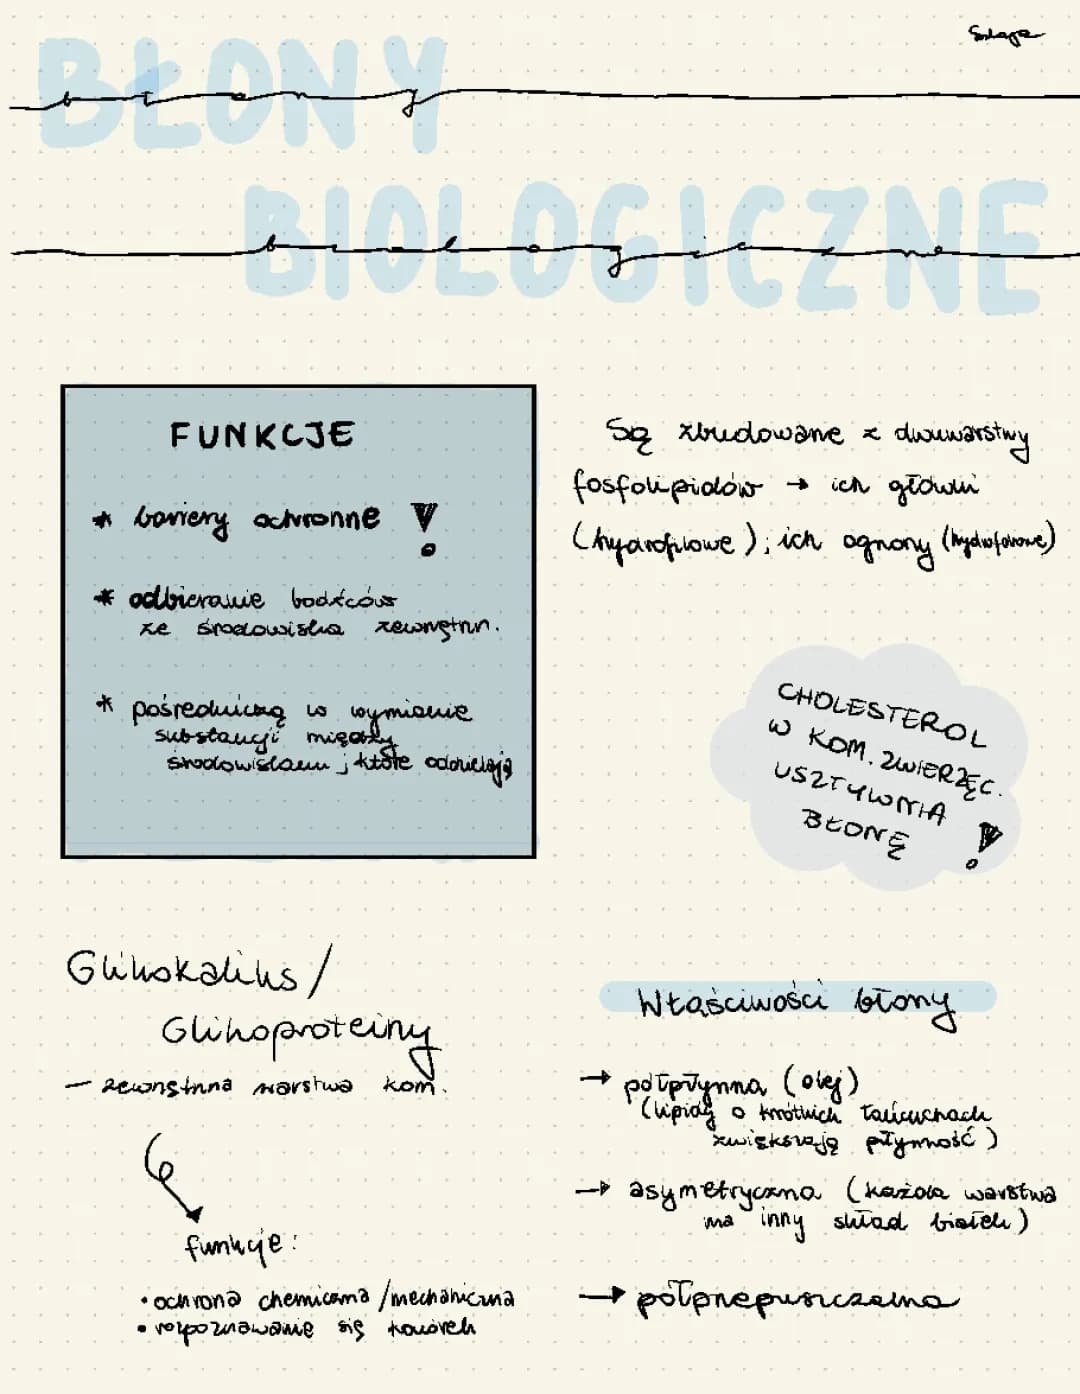 BŁONY
błony
BIOLOGICZNE
biologiczne
FUNKCJE
* bariery ochronne !
* odbieranie bodźców
ze środowiska zewnętrzn.
* pośredniczą w wymianie
substancji między
środowiskami, które oddzielają
Są zbudowane z dwuwarstwy
fosfolipidów → ich główki
(hydrofilowe); ich ogony (hydrofobowe)
CHOLESTEROL
W KOM. ZWIERZĘC.
USZTYWNIA
BŁONĘ !
Glikokaliks /
Glikoproteiny
— zewnętrzna warstwa kom.
funkcje:
• ochrona chemiczna / mechaniczna
• rozpoznawanie się komórek
Właściwości błony
→ półpłynna (olej)
(lipidy o krótkich łańcuchach
zwiększają płynność)
→ asymetryczna (każda warstwa
ma inny skład białek)
→ półprzepuszczalna